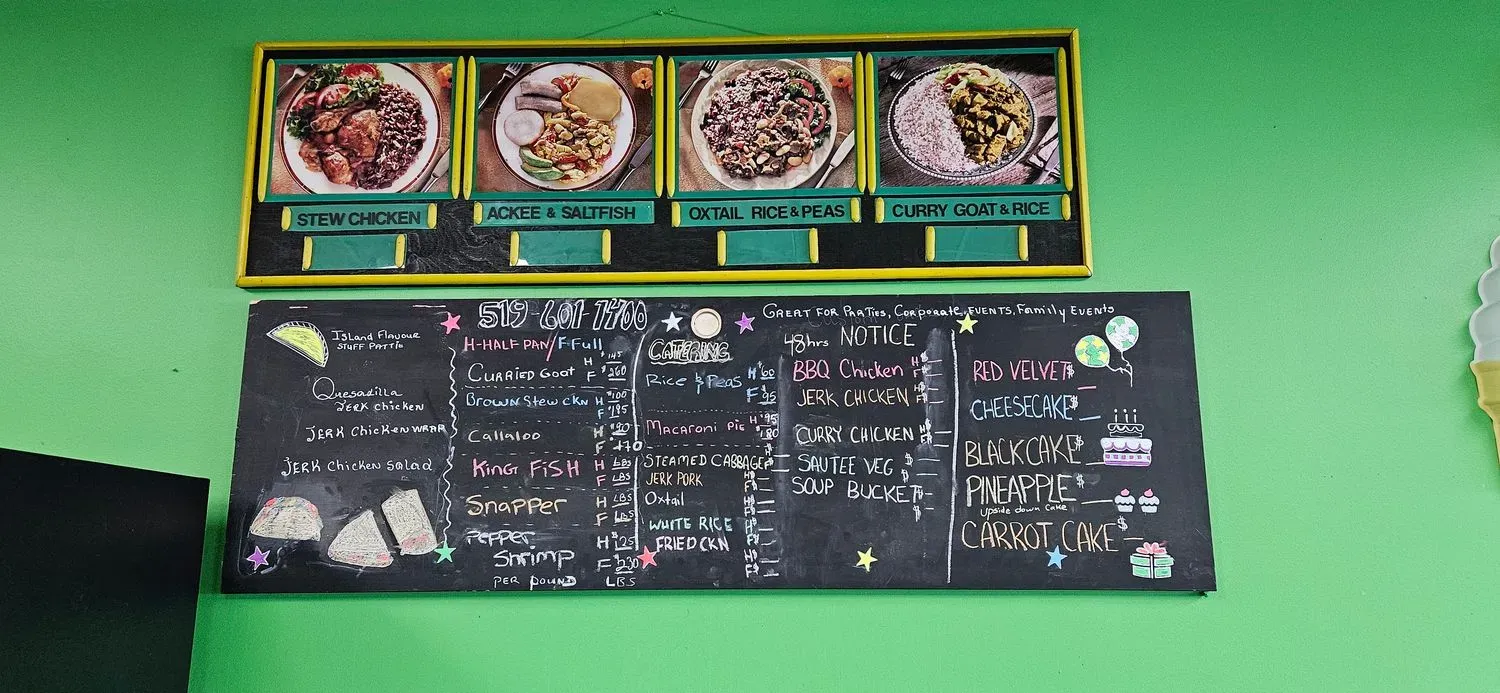 STEW CHICKEN
ACKEE & SALTFISH
OXTAIL RICE & PEAS
CURRY GOAT & RICE
Island Flavour
STUFF PATTIO
Quesadilla
JERK chicken
JERK Chicken WRAP
JERK Chicken Salad
519-601-7400
H-HALF PAN/F Full
CURRIED Goat H $145
F $260
BROWN Stew CKN H $100
F $195
Callaloo H $90
F
KING FISH H LBS
F LBS
Snapper H LBS
F LBS
PEPPER H $125
Shrimp F $230
PER POUND LBS
CATERING
Rice & Peas H $60
F $95
MACARONI PIE H $95
$180
STEAMED CABBAGE
JERK PORK
Oxtail
WHITE RICE
FRIED CKN
GREAT FOR PARTIES, CORPORATE, EVENTS, Family EVENTS
48hrs NOTICE
BBQ Chicken H$
F$
JERK CHICKEN H$
F$
CURRY CHICKEN H$
F$
SAUTEE VEG $
SOUP BUCKET $
$
RED VELVET $
CHEESECAKE $
BLACK CAKE $
PINEAPPLE $
Upside down Cake
CARROT CAKE $